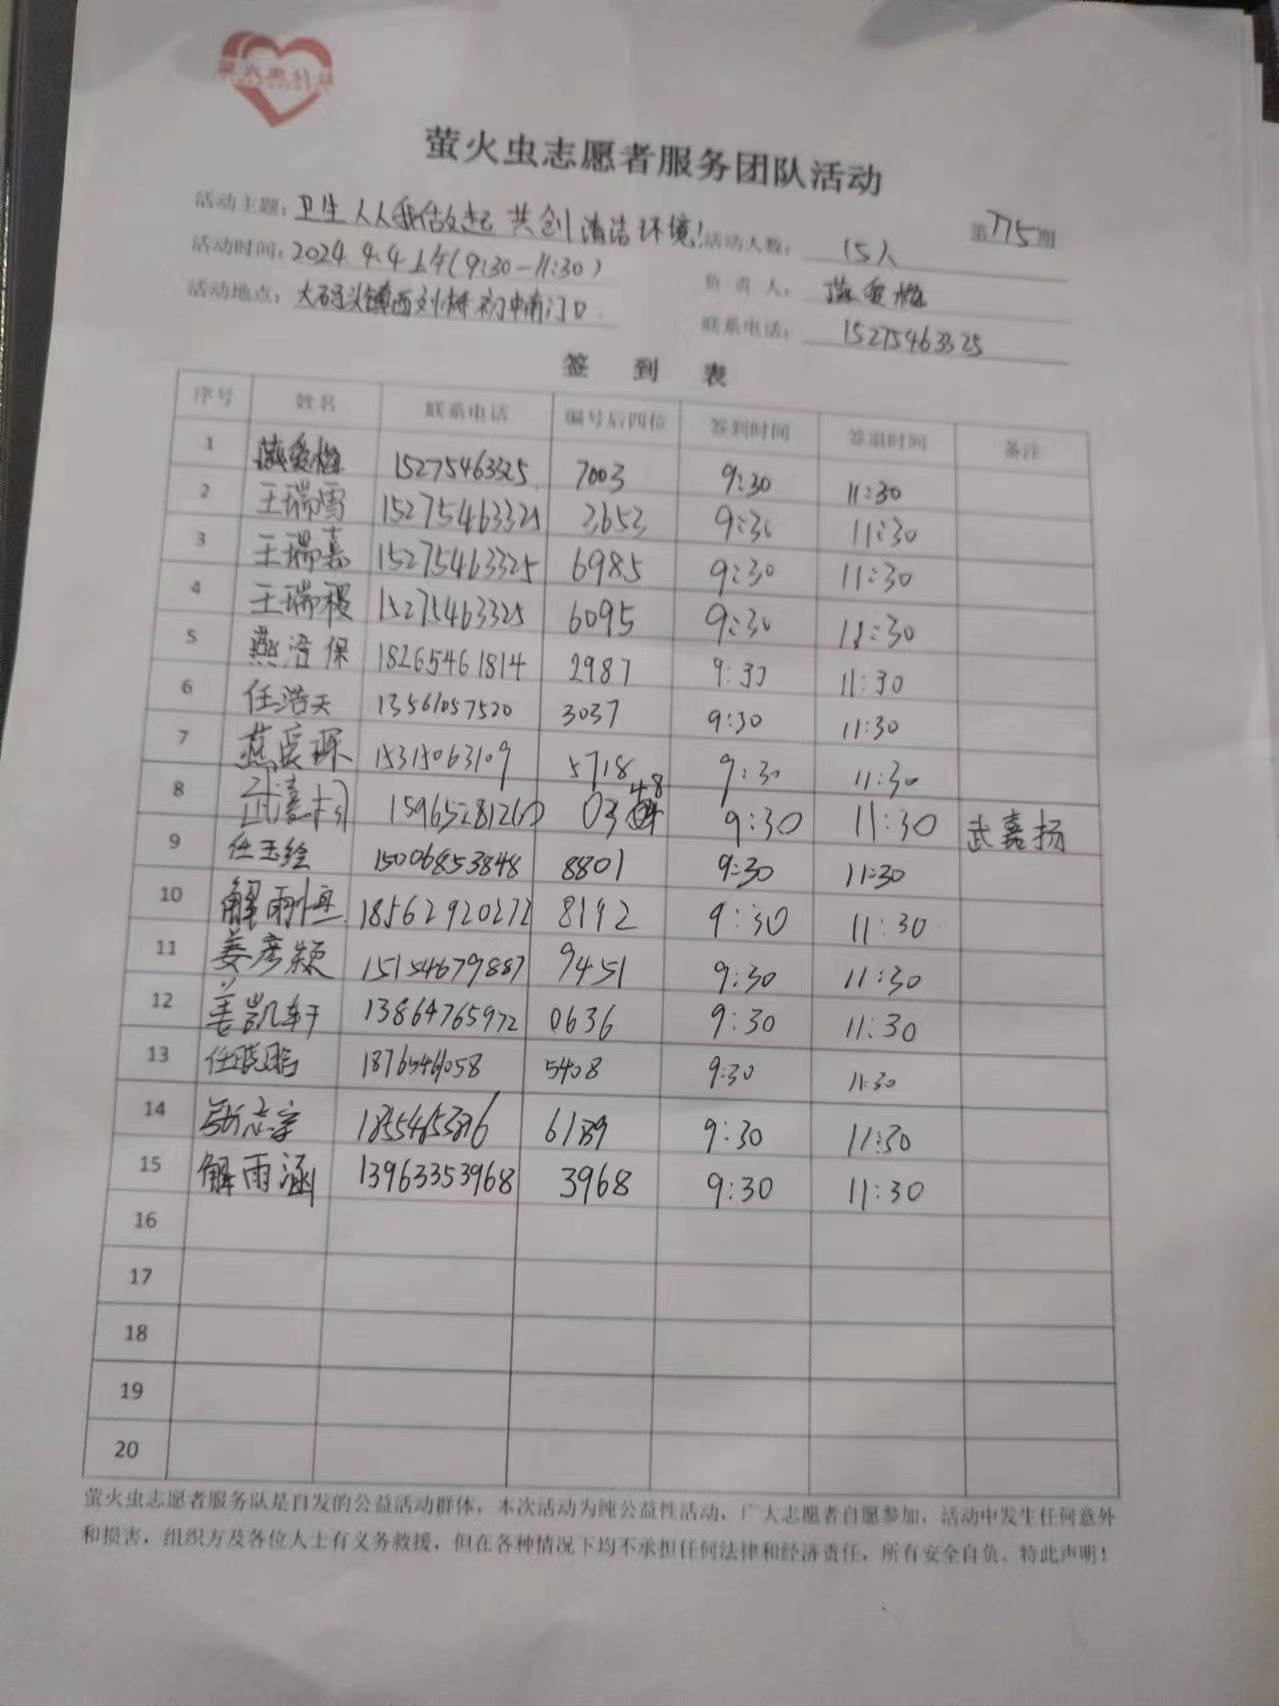 萤火虫志愿者服务团队活动
活动主题: 卫生人人我做起 共创清洁环境! 第775期
活动人数: 15人
活动时间: 2024.4.4上午(9:30-11:30)
负责人: 燕爱梅
活动地点: 大码头镇西刘桥初中南门口
联系电话: 15275463325
签到表
序号 姓名 联系电话 编号后四位 签到时间 签退时间 备注
1 燕爱梅 15275463325 7003 9:30 11:30
2 王瑞雪 15275463325 3653 9:30 11:30
3 王瑞嘉 15275463325 6985 9:30 11:30
4 王瑞稷 15275463325 6095 9:30 11:30
5 燕浩保 18265461814 2987 9:30 11:30
6 任浩天 13561057520 3037 9:30 11:30
7 燕 15315063109 5718 9:30 11:30
8 武嘉扬 15965281260 0348 9:30 11:30 武嘉扬
9 任玉绘 15006853848 8801 9:30 11:30
10 解雨恒 18562920272 8192 9:30 11:30
11 姜彦颖 15154679887 9451 9:30 11:30
12 姜凯轩 13864765972 0636 9:30 11:30
13 任晓鹏 5408 9:30 11:30
14 9:30 11:30
15 解雨涵 13963353968 3968 9:30 11:30
16
17
18
19
20
萤火虫志愿者服务队是自发的公益活动群体，本次活动为纯公益性活动，广大志愿者自愿参加，活动中发生任何意外
和损害，组织方及各位人士有义务救援，但在各种情况下均不承担任何法律和经济责任，所有安全自负。特此声明！